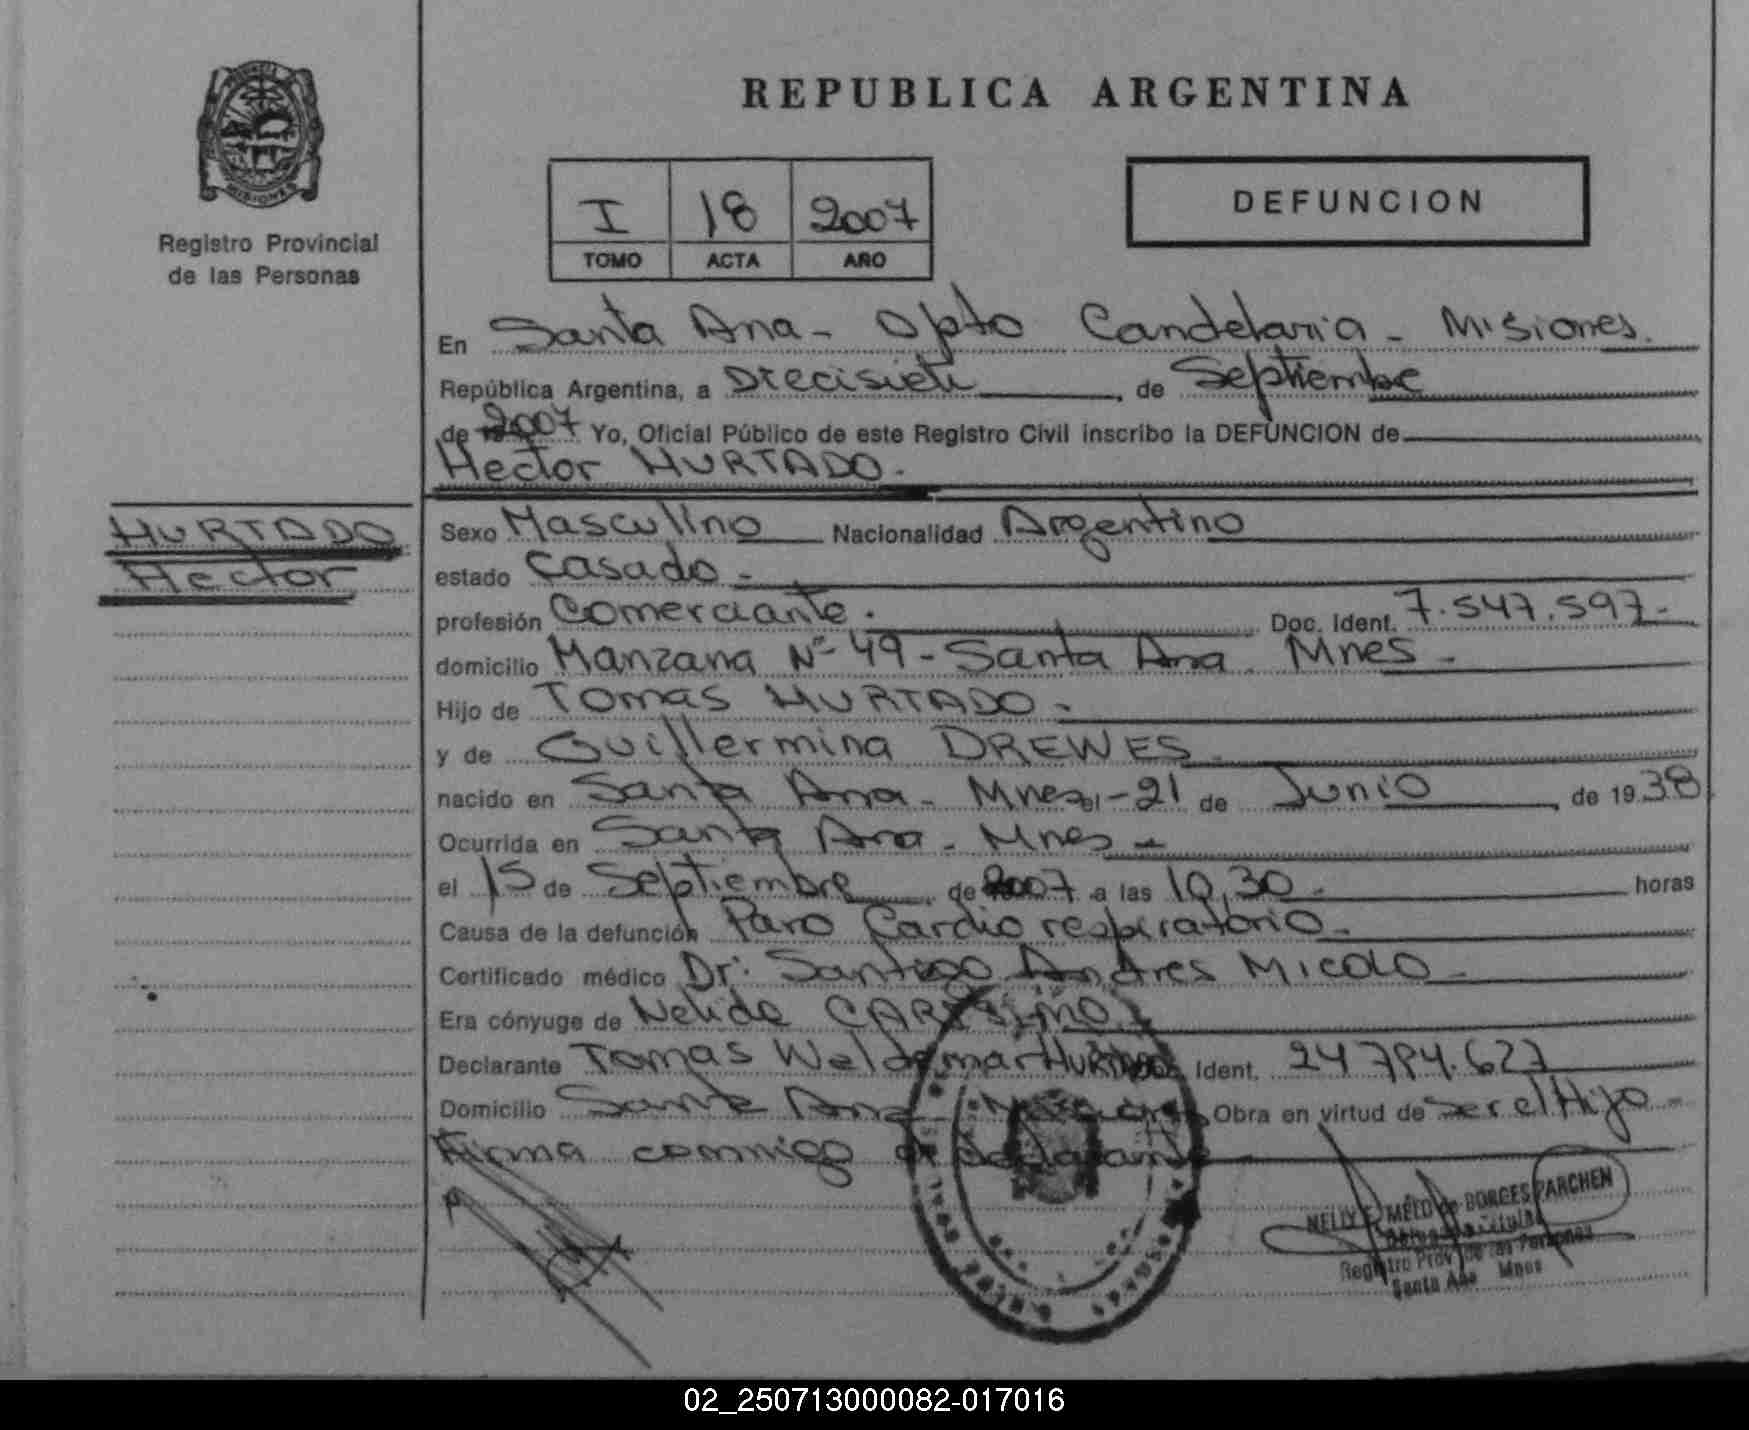 REPUBLICA ARGENTINA
PROVINCIA
MISIONES
Registro Provincial
de las Personas
I 18 2007
TOMO ACTA AÑO
DEFUNCION
En Santa Ana - Dpto Candelaria - Misiones.
República Argentina, a Diecisiete, de Septiembre
de 2007 Yo, Oficial Público de este Registro Civil inscribo la DEFUNCION de
Hector HURTADO.-
HURTADO
Hector
Sexo Masculino Nacionalidad Argentino
estado Casado -
profesión Comerciante. Doc. Ident. 7.547.597.-
domicilio Manzana Nº 49 - Santa Ana. Mnes -
Hijo de Tomas HURTADO -
y de Guillermina DREWES -
nacido en Santa Ana - Mnes el - 21 de Junio, de 1938
Ocurrida en Santa Ana - Mnes -
el 15 de Septiembre de 2007 a las 10,30 - horas
Causa de la defunción Paro Cardio respiratorio -
Certificado médico Dr. Santiago Andres Micolo -
Era cónyuge de Nelida
Declarante Tomas Weldemar Hurtado Ident. 24.794.627
Domicilio Santa Ana - Obra en virtud de Ser el Hijo -
Firma conmigo el declarante -
NELLY E. MELO de BORGES PARCHEN
Delegada Titular
Registro Prov. de las Personas
Santa Ana Mnes
02_250713000082-017016